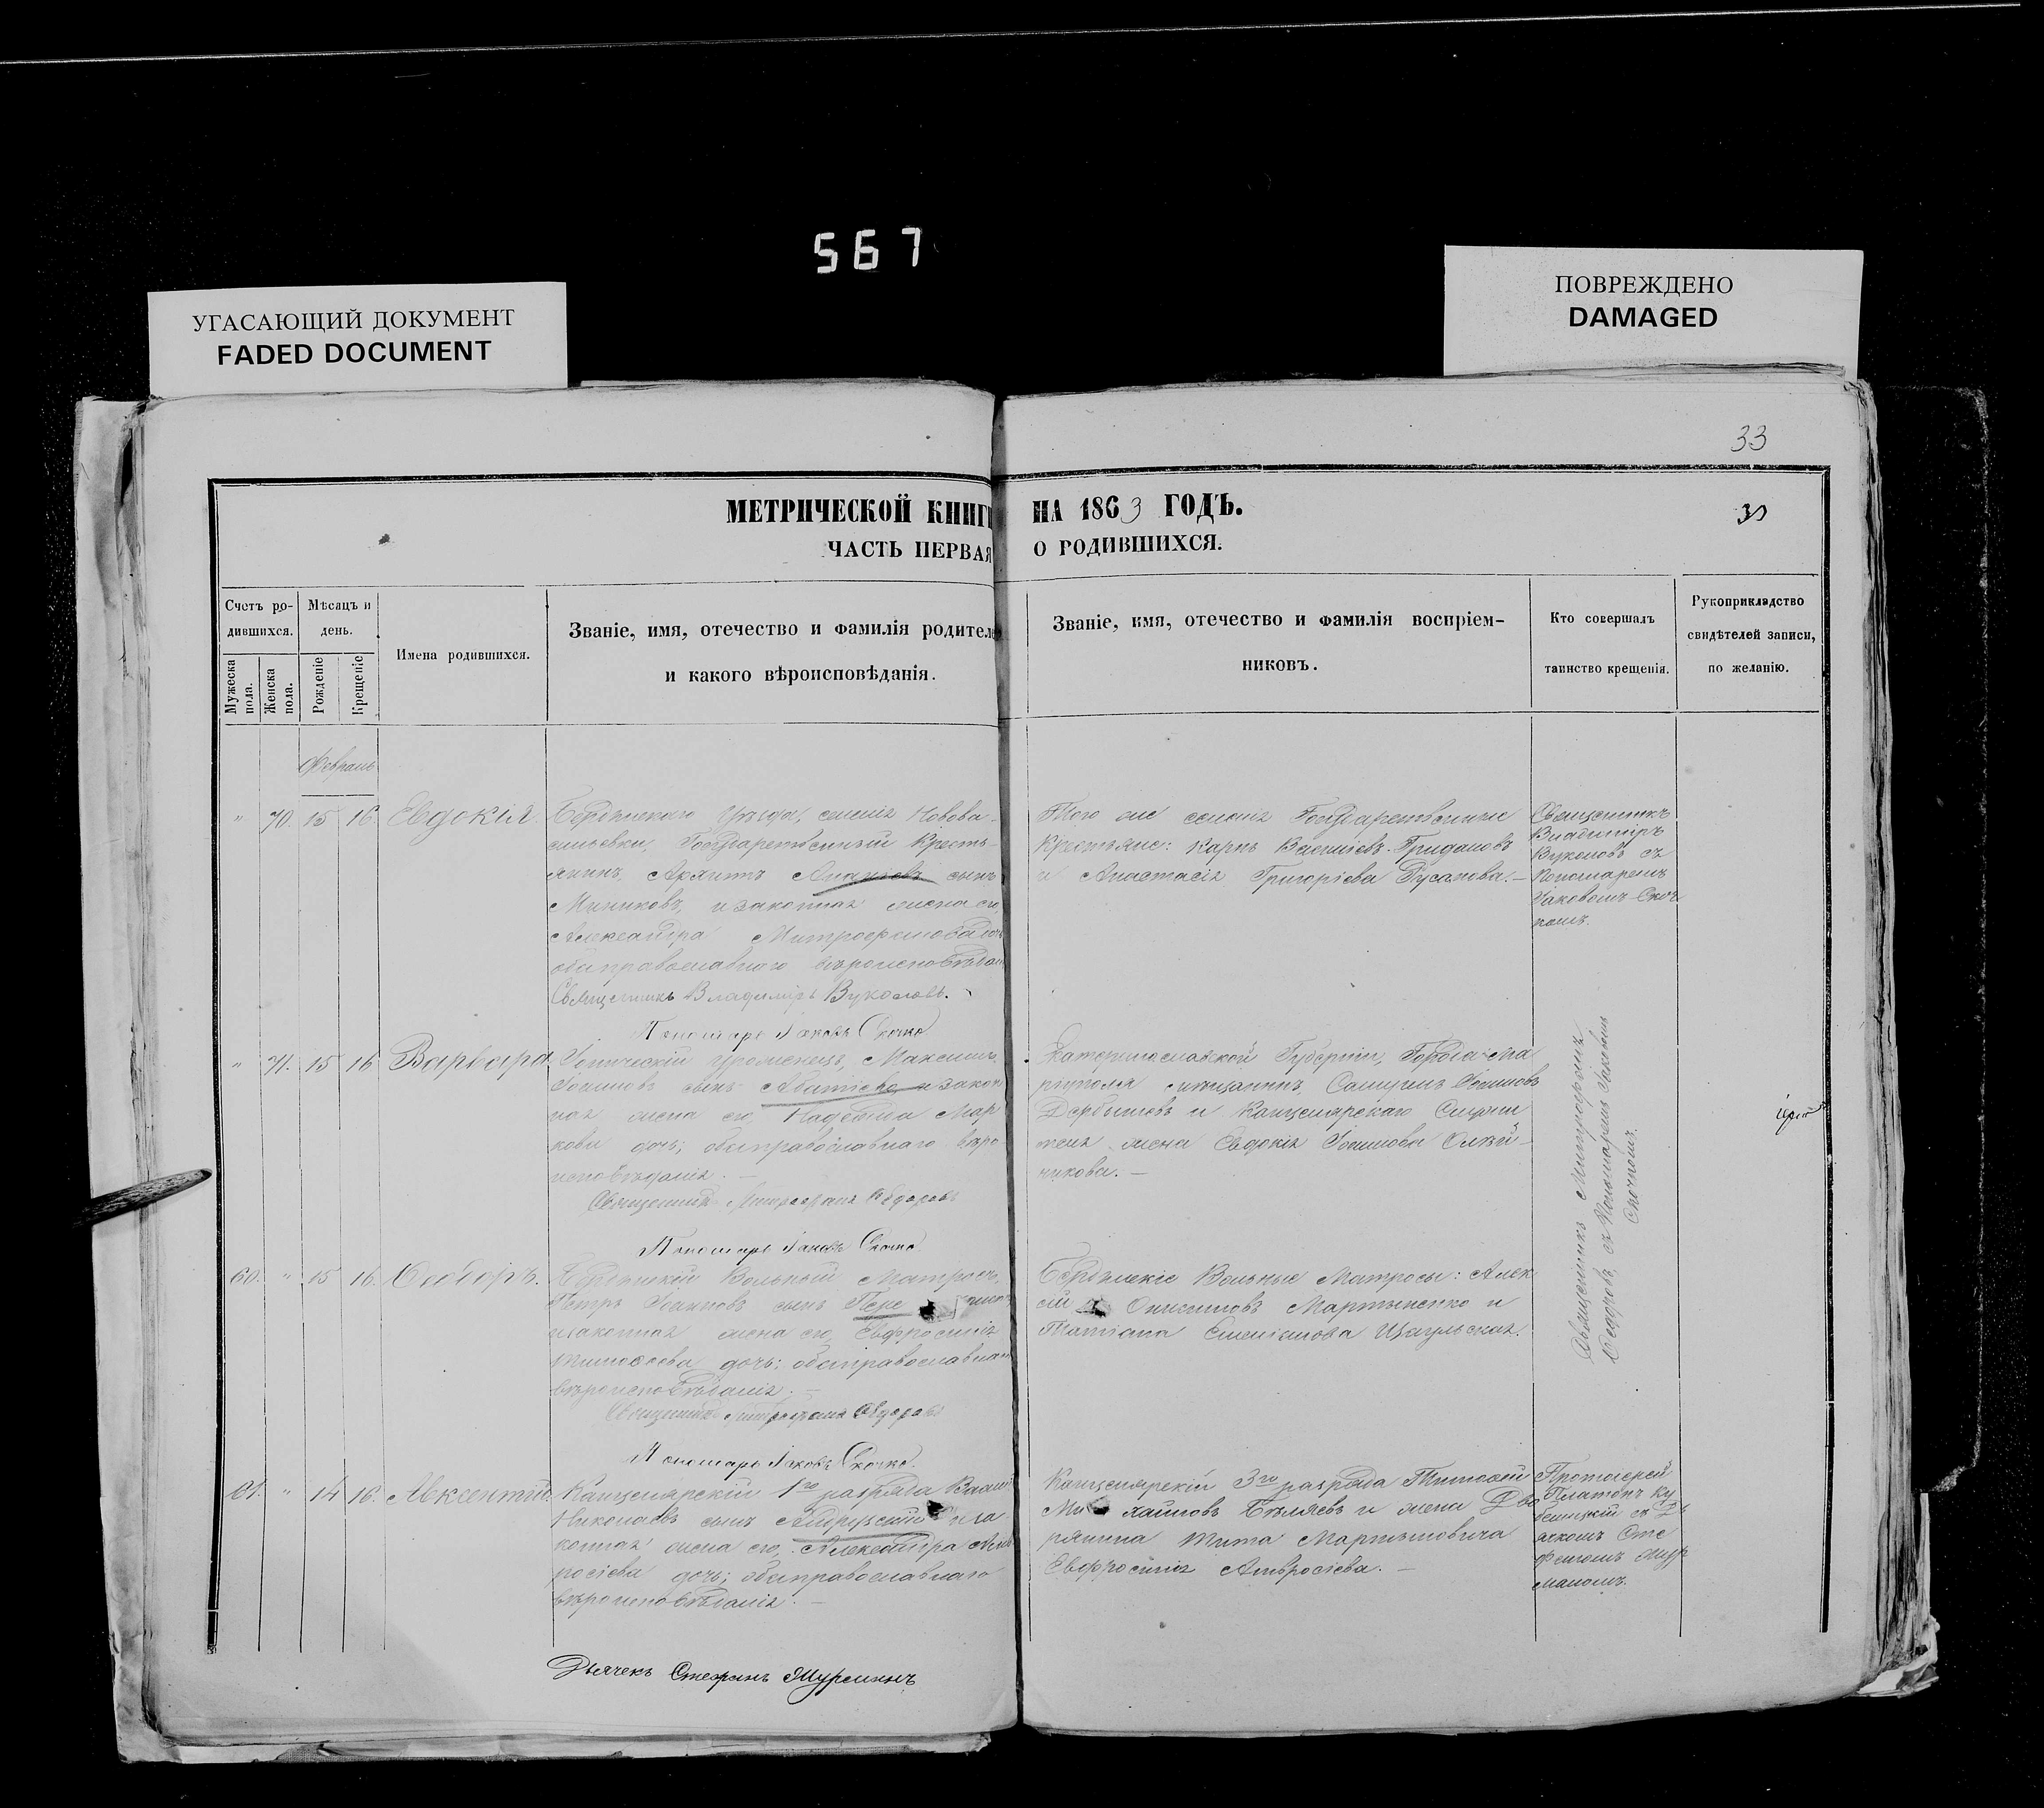 567
УГАСАЮЩИЙ ДОКУМЕНТ
FADED DOCUMENT
ПОВРЕЖДЕНО
DAMAGED
33
МЕТРИЧЕСКОЙ КНИГИ НА 1863 ГОДЪ.
ЧАСТЬ ПЕРВАЯ О РОДИВШИХСЯ.
Счетъ ро-
дившихся.
Мужеска пола.
Женска пола.
Мѣсяцъ и
день.
Рожденіе
Крещеніе
Имена родившихся.
Званіе, имя, отчество и фамилія родителе
и какого вѣроисповѣданія.
Званіе, имя, отечество и фамилія воспріем-
никовъ.
Кто совершалъ
таинство крещенія.
Рукоприкладство
свидѣтелей записи,
по желанію.
Февраль
" 70. 15 16. Евдокія
Бердянскаго Уѣзда, селенія Новова-
сильевки, Государственный Кресть-
янинъ, сынъ
и законная жена его,
Александра Митрофанова дочь
оба православнаго вѣроисповѣдан
Священникъ Владиміръ Вуколовъ.
Пономарь Іаковъ Скочко
Того же селенія Государственные
Крестьяне: Карпъ Васильевъ
и Анастасія Григорієва Русанова.—
Священникъ
Владиміръ
Вуколовъ съ
Пономаремъ
Іаковомъ Скоч
комъ.
" 71. 15 16 Варвара
уроженецъ, Максимъ
Іоанновъ сынъ и закон
ная жена его Надежда Мар
кова дочь; оба православнаго вѣро
исповѣданія.—
Священникъ Митрофанъ Ѳедоровъ
Пономарь Іаковъ Скочко
Екатеринославской Губерніи, Города Ма
ріуполя мѣщанинъ, Самуилъ Іоанновъ
и Канцелярскаго Служи
теля жена Евдокія Іоаннова Олѣй-
никова.—
Священникъ Митрофанъ
Ѳедоровъ, съ Пономаремъ Іаковомъ
Скочкомъ.
60. " 15 16. Ѳеодоръ.
Бердянскій Вольный Матросъ,
Петръ Іоанновъ сынъ
и законная жена его, Евфросинія
Тимоѳеева дочь; оба православнаго
вѣроисповѣданія.—
Священникъ Митрофанъ Ѳедоровъ
Пономарь Іаковъ Скочко.
Бердянскіе Вольные Матросы: Алек
сій Онисимовъ Мартыненко и
Татіана Емеліанова
61. " 14 16. Авксентій.
Канцелярскій 1го разряда Васил
Николаевъ сынъ и за
конная жена его, Александра Амв
росіева дочь; оба православнаго
вѣроисповѣданія.—
Канцелярскій 3го разряда Тимоѳей
Михаиловъ Бѣляевъ и жена Дво
рянина Тита Мартыновича
Евфросинія Амвросіева.—
Протоіерей
Платонъ
съ Дь
ячкомъ Сте
фаномъ Шур
маномъ.
Дьячекъ Стефанъ Шурманъ